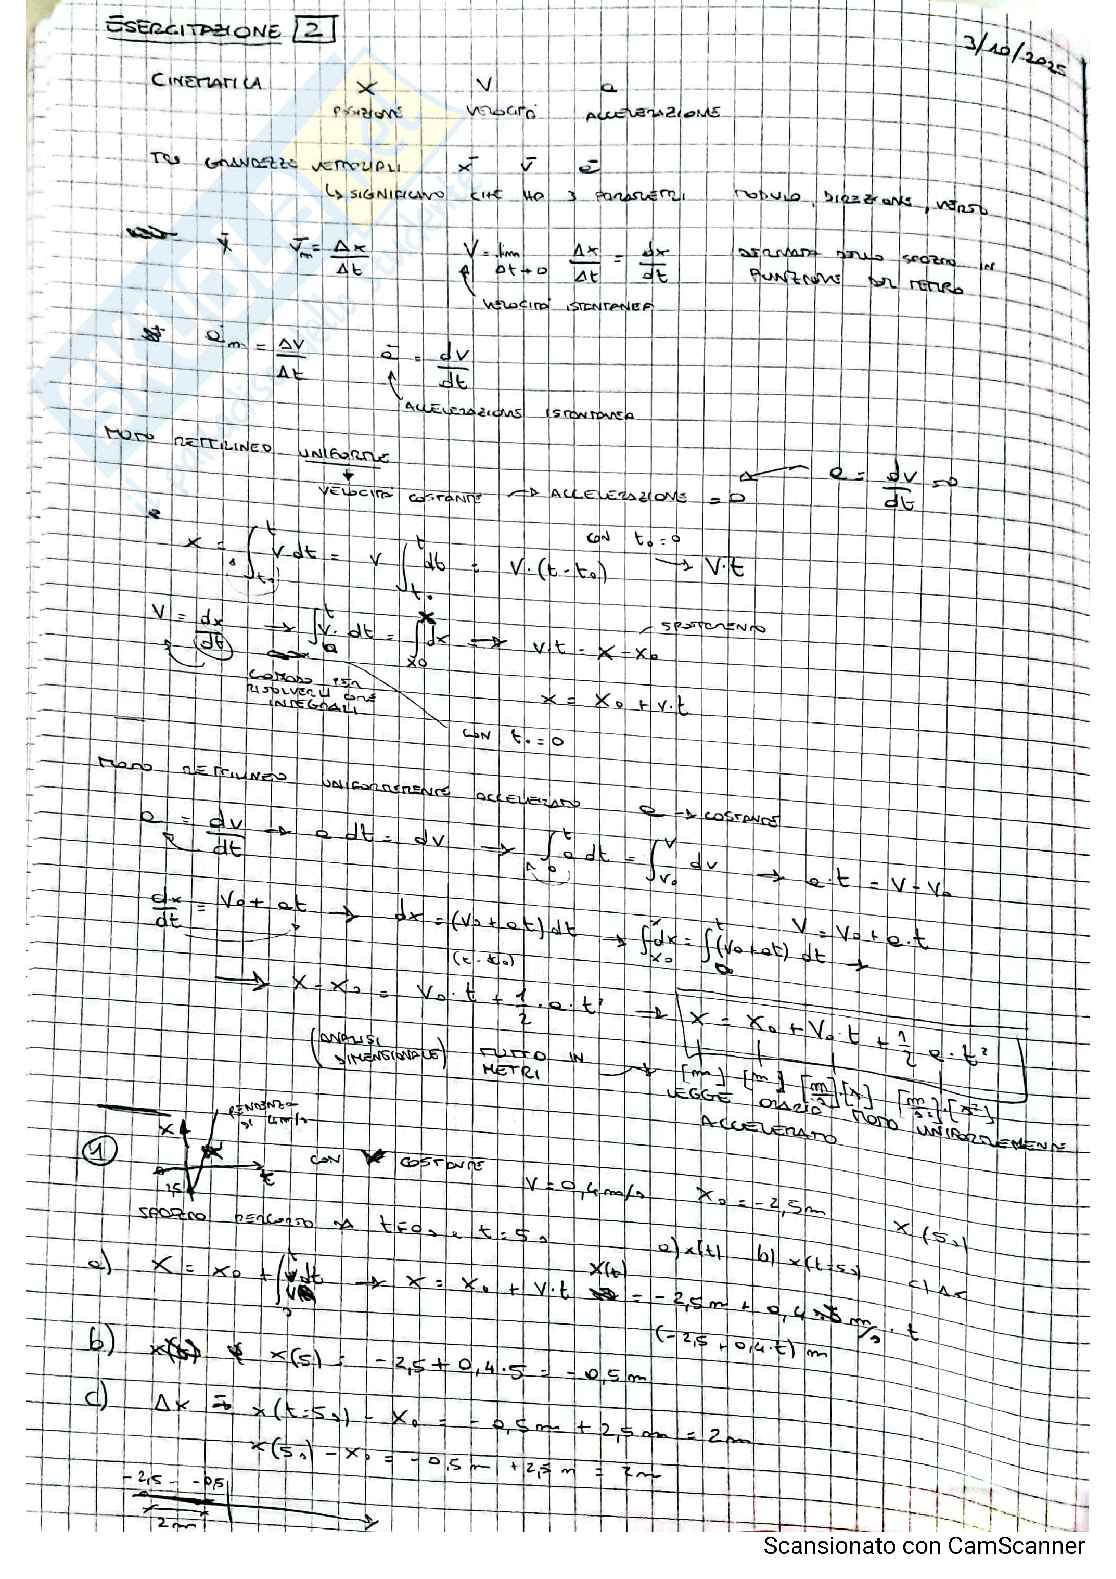 ESERCITAZIONE 2
3/10/2025
CINEMATICA X V a
POSIZIONE VELOCITÀ ACCELERAZIONE
TRE GRANDEZZE VETTORIALI x̄ v̄ ā
↳ SIGNIFICATO CHE HO 3 PARAMETRI MODULO, DIREZIONE, VERSO
v̄m = Δx/Δt V = lim Δt→0 Δx/Δt = dx/dt DERIVATA DELLO SPAZIO IN FUNZIONE DEL TEMPO
VELOCITÀ ISTANTANEA
am = ΔV/Δt ā = dv/dt
ACCELERAZIONE ISTANTANEA
MOTO RETTILINEO UNIFORME
VELOCITÀ COSTANTE → ACCELERAZIONE = 0 ← a = dv/dt = 0
x = ∫ V dt = V ∫ dt = V·(t-t₀) CON t₀=0 → V·t
V = dx/dt → ∫ V· dt = ∫ dx → v·t = x-x₀ SPOSTAMENTO
COMODO PER RISOLVERLI CON INTEGRALI
x = x₀ + v·t
CON t₀=0
MOTO RETTILINEO UNIFORMEMENTE ACCELERATO a → COSTANTE
a = dv/dt → a dt = dv → ∫ a dt = ∫ dv → a·t = V-V₀
V = V₀ + a·t
dx/dt = V₀ + at → dx = (V₀+at) dt → ∫ dx = ∫ (V₀+at) dt →
(t-t₀)
→ X-X₀ = V₀·t + 1/2·a·t² → X = X₀ + V₀·t + 1/2 a·t²
(ANALISI DIMENSIONALE) TUTTO IN METRI → [m] [m] [m/s]·[s] [m/s²]·[s²]
LEGGE ORARIA MOTO UNIFORMEMENTE ACCELERATO
PENDENZA DI 4m/s
X
t
2,5
1 CON V COSTANTE V = 0,4 m/s X₀ = -2,5m
SPAZIO PERCORSO DA t=0s e t=5s a) x(t) b) x(t=5s) c) Δx
X(5s)
a) X = X₀ + ∫ V dt → X = X₀ + V·t X(t) = -2,5m + 0,4 m/s · t
(-2,5 + 0,4·t) m
b) x(5) = -2,5 + 0,4·5 = -0,5m
c) Δx = x(t=5s) - X₀ = -0,5m + 2,5m = 2m
x(5s) - X₀ = -0,5m + 2,5m = 2m
-2,5 -0,5
2m
Scansionato con CamScanner